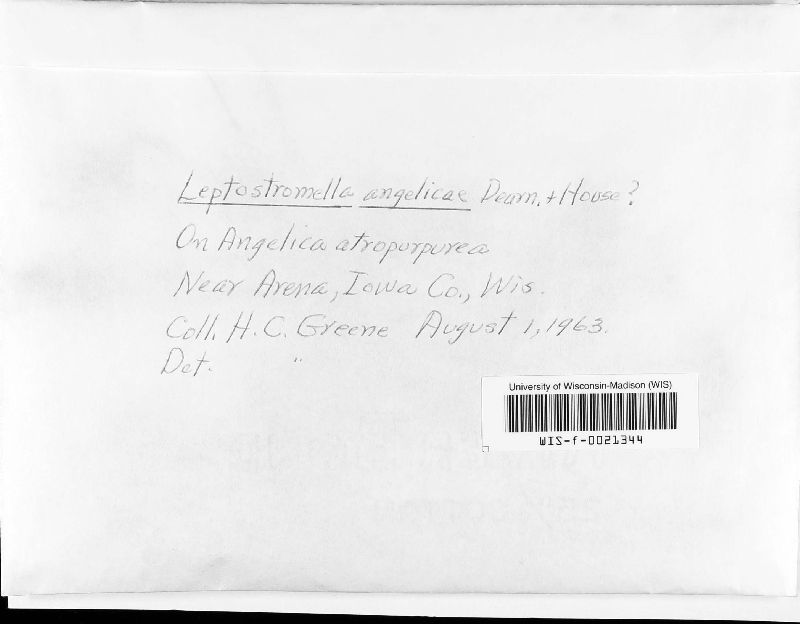 Leptostromella angelicae Dearn. + House?
On Angelica atropurpurea
Near Arena, Iowa Co., Wis.
Coll. H.C. Greene August 1, 1963.
Det. "
University of Wisconsin-Madison (WIS)
WIS-f-0021344